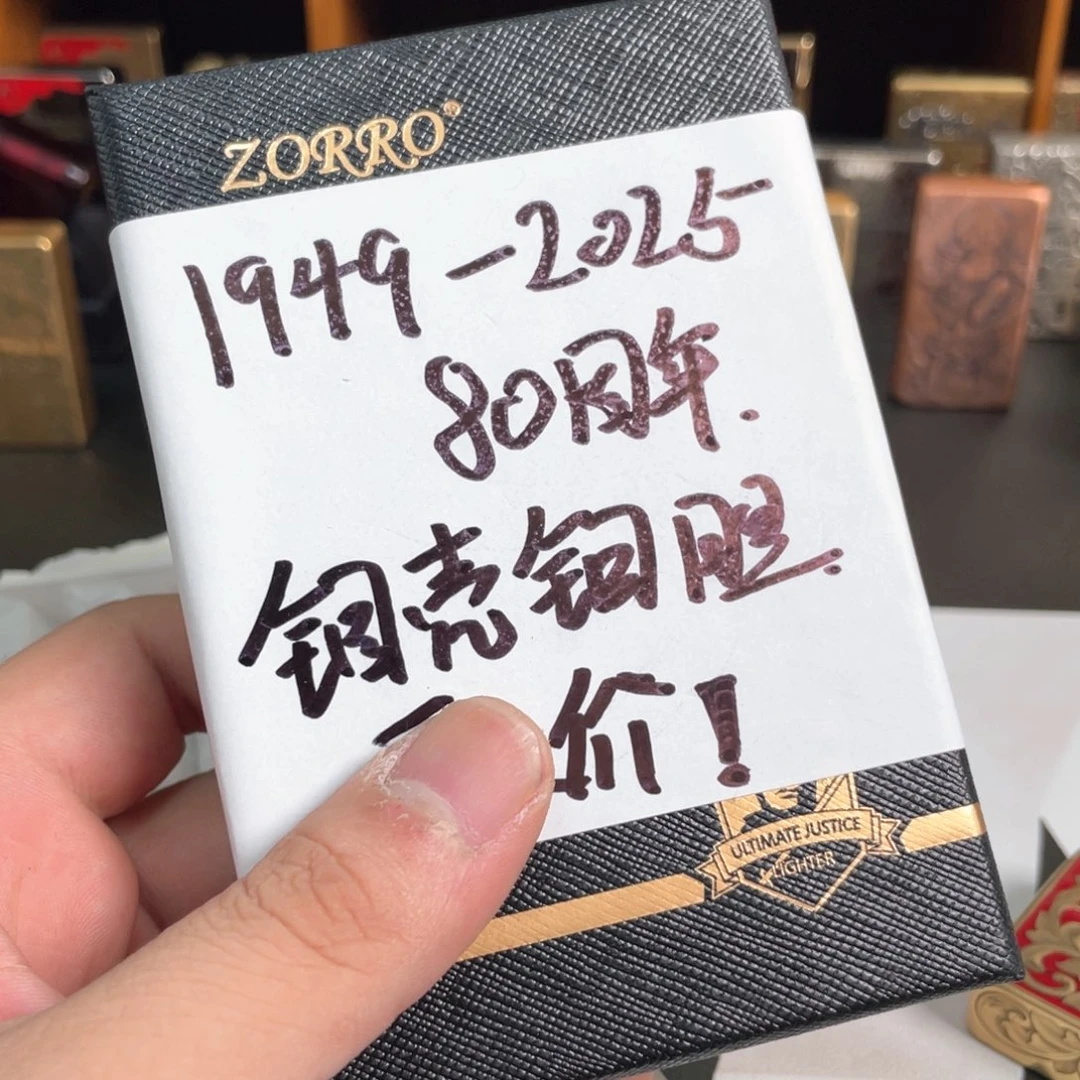 ZORRO®
1949-2025
80周年.
钼壳钼胆.
价!
ULTIMATE JUSTICE
LIGHTER